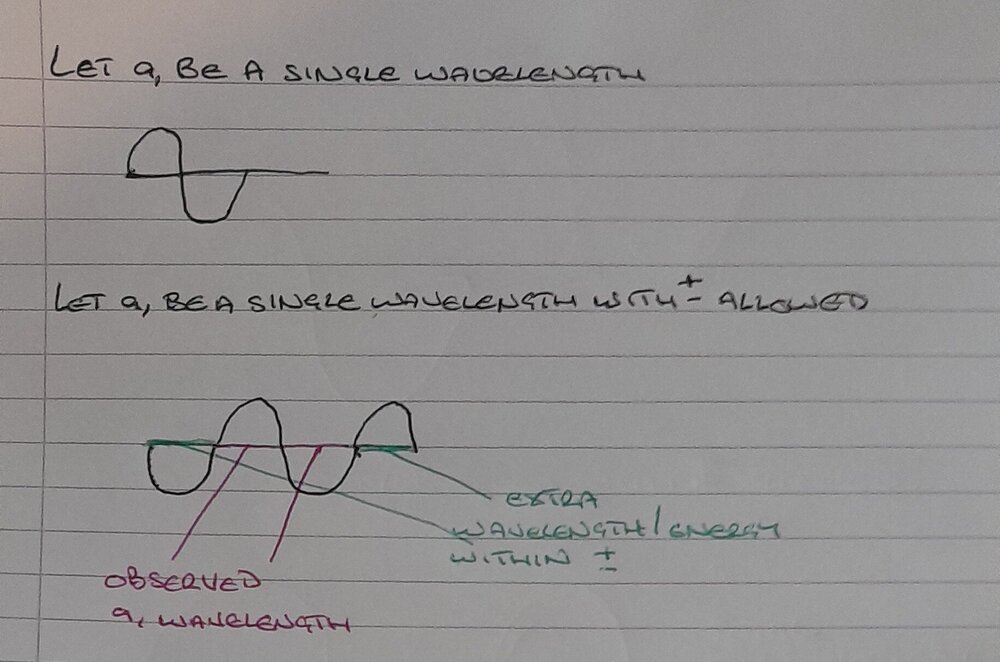 LET a, BE A SINGLE WAVELENGTH
LET a, BE A SINGLE WAVELENGTH WITH ± ALLOWED
EXTRA
WAVELENGTH/ENERGY
WITHIN ±
OBSERVED
a, WAVELENGTH